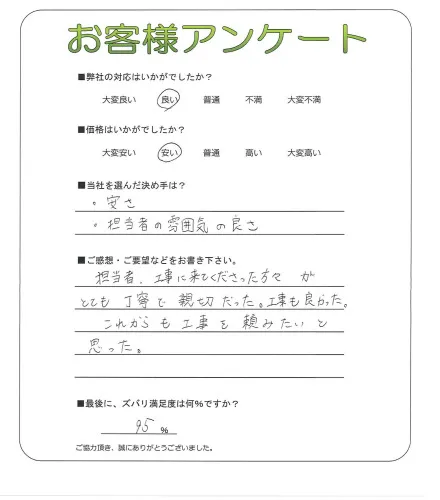 お客様アンケート
■弊社の対応はいかがでしたか？
大変良い 良い 普通 不満 大変不満
■価格はいかがでしたか？
大変安い 安い 普通 高い 大変高い
■当社を選んだ決め手は？
・安さ
・担当者の雰囲気の良さ
■ご感想・ご要望などをお書き下さい。
担当者、工事に来てくださった方々が
とても丁寧で親切だった。工事も良かった。
これからも工事を頼みたいと
思った。
■最後に、ズバリ満足度は何%ですか？
95 %
ご協力頂き、誠にありがとうございました。